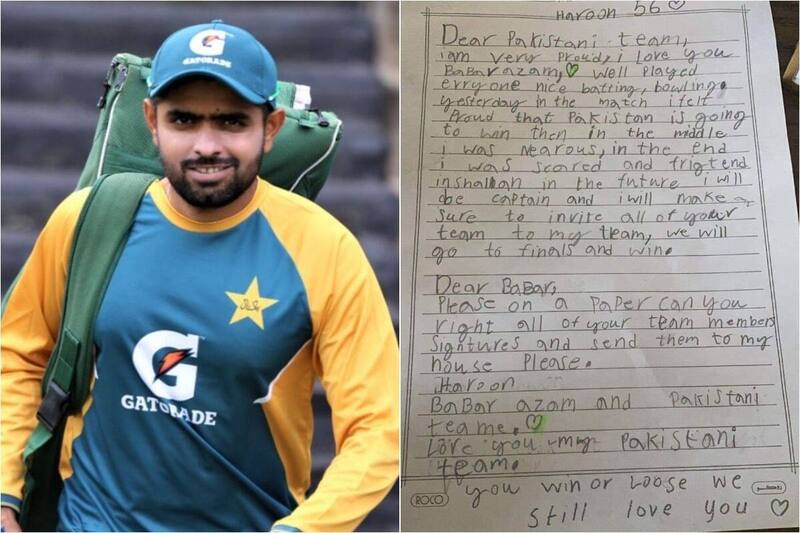 G
GATORADE
G
GATORADE
Haroon 56 ♡
Dear Pakistani team,
i am very proud, i love you
BaBar azam, well played
erryone nice batting, bowling.
yesterday in the match i felt
Proud that Pakistan is going
to win then in the middle
i was nearous, in the end
i was scared and frigtend
inshallah in the future i will
be captain and i will make
sure to invite all of your
team to my team, we will
go to finals and win.
Dear BaBar,
Please on a Paper can you
right all of your team members
signtures and send them to my
house Please.
Haroon
BaBar azam and Pakistani
teame. ♡
Love you my Pakistani
team.
ROCO
you win or Loose we
still love you ♡